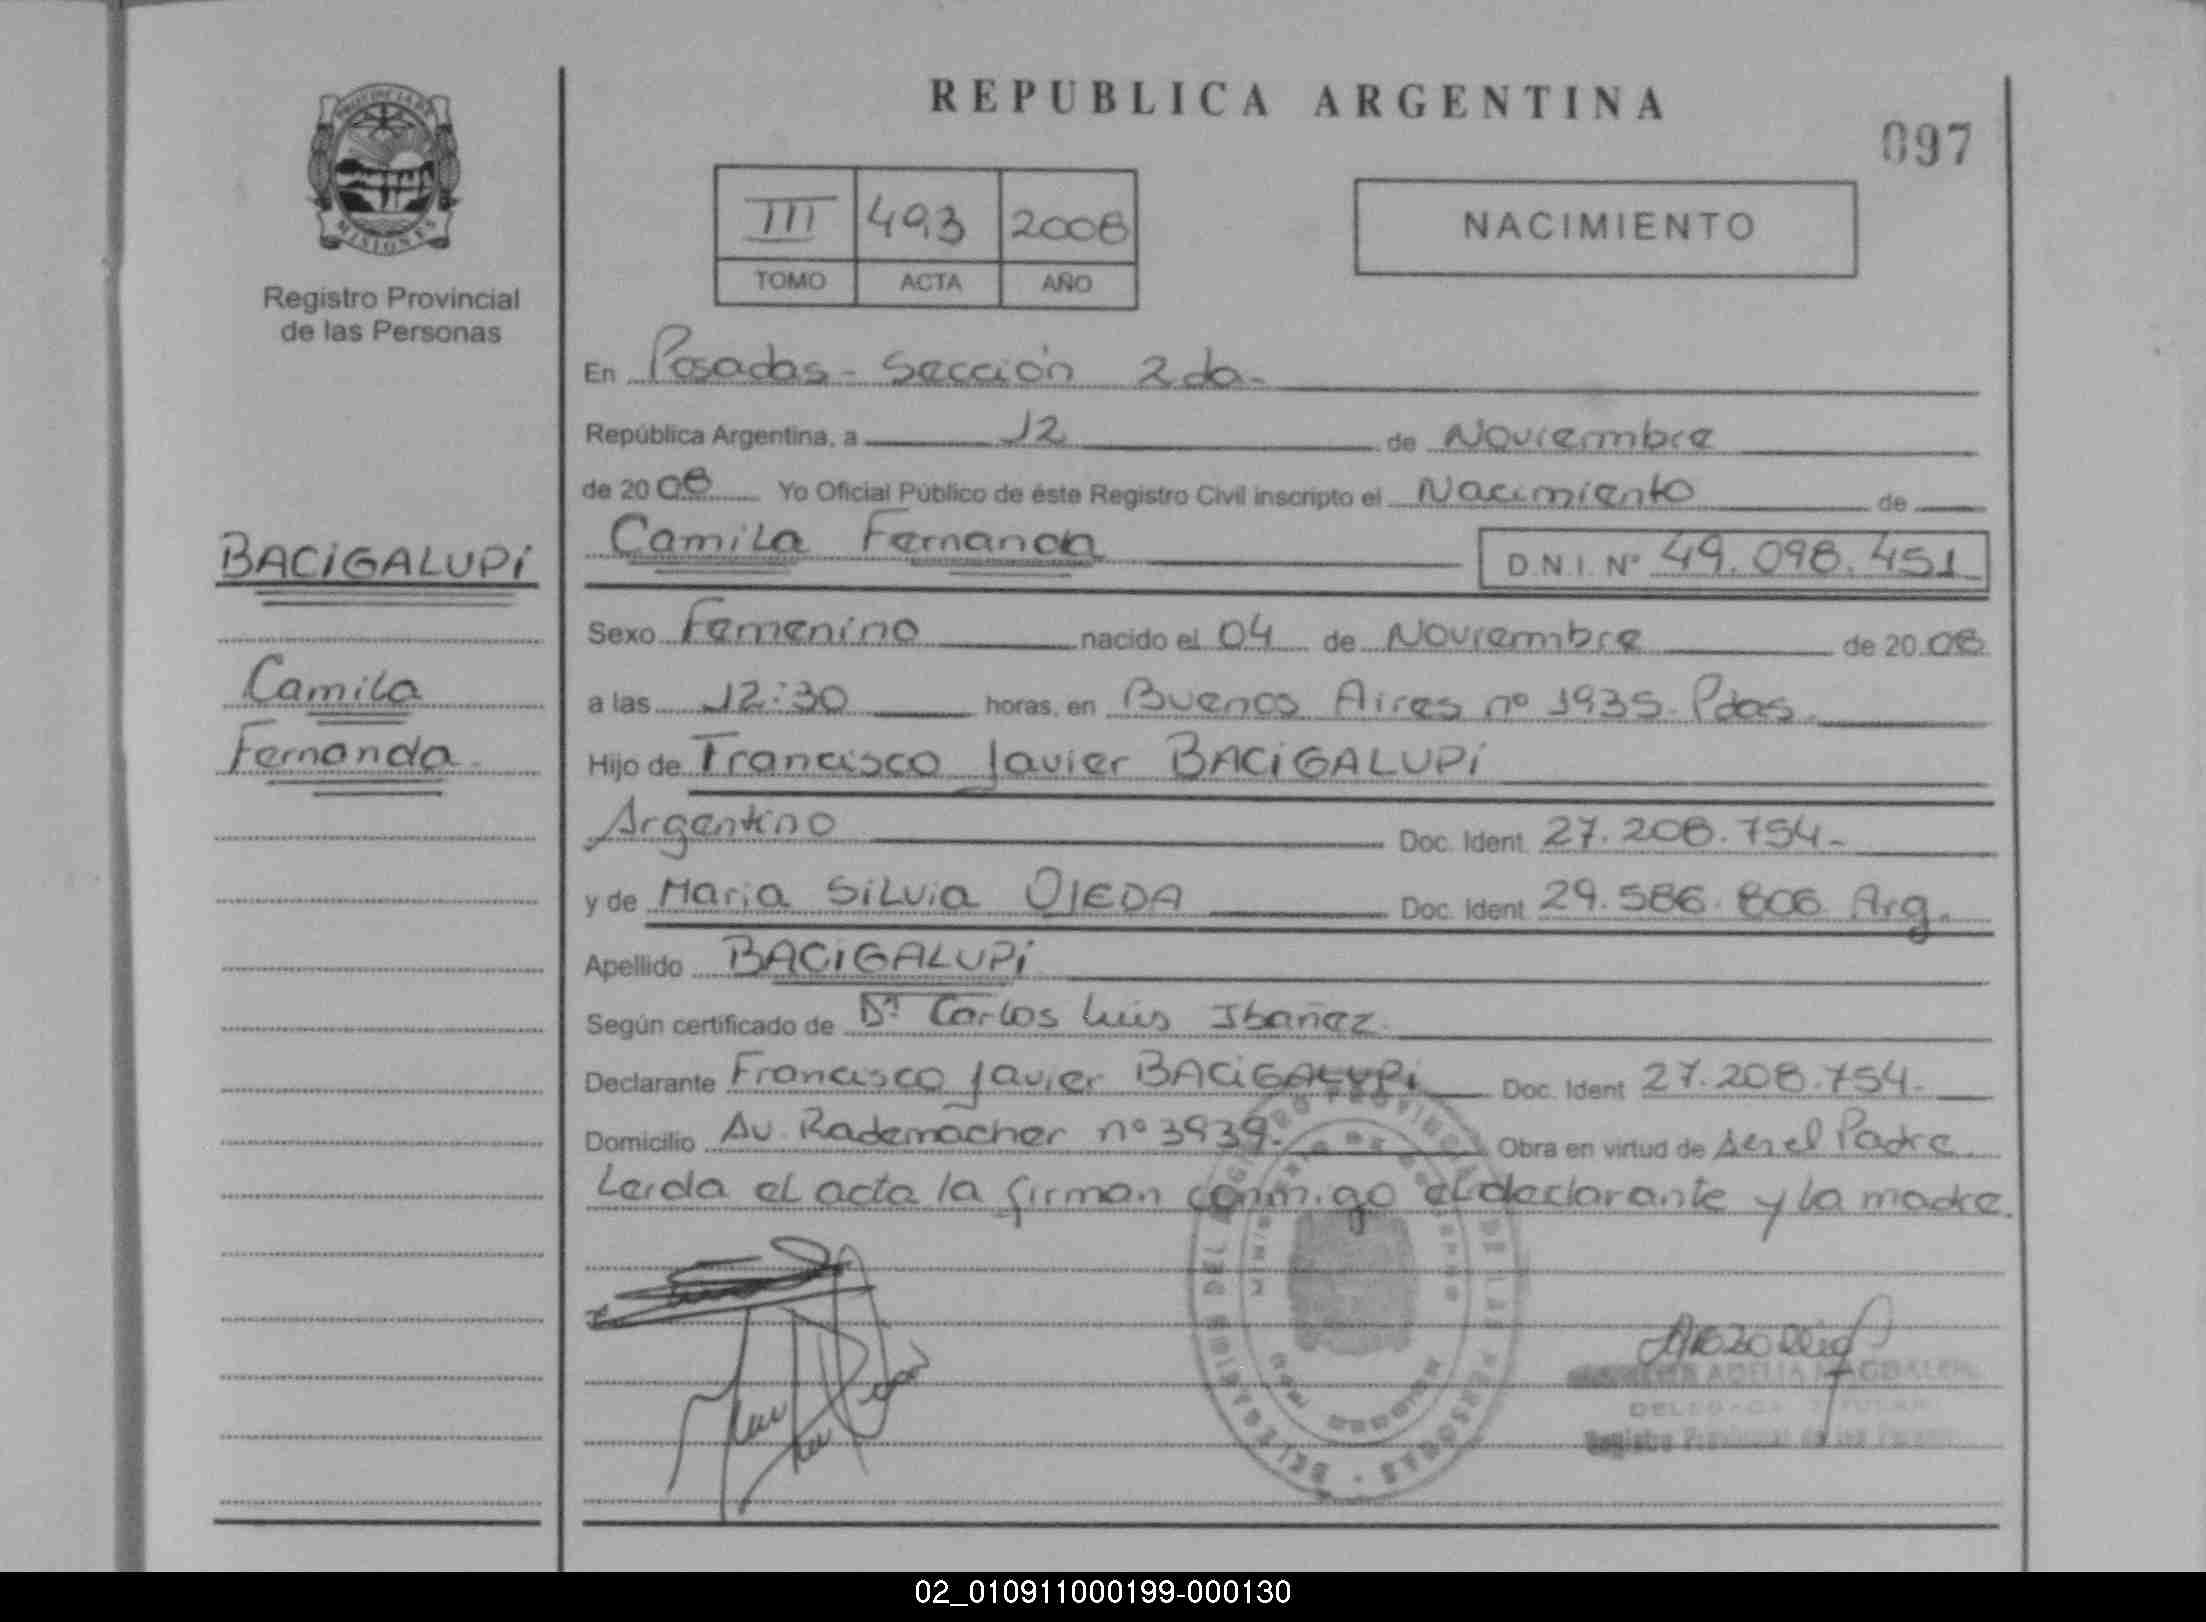 PROVINCIA DE
MISIONES
Registro Provincial
de las Personas
BACIGALUPI
Camila
Fernanda
REPUBLICA ARGENTINA
097
III 493 2008
TOMO ACTA AÑO
NACIMIENTO
En Posadas - Sección 2da.
República Argentina, a 12 de Noviembre
de 2008 Yo Oficial Público de éste Registro Civil inscripto el Nacimiento de
Camila Fernanda D.N.I. Nº 49.098.451
Sexo Femenino nacido el 04 de Noviembre de 2008
a las 12:30 horas, en Buenos Aires nº 1935. Pdas.
Hijo de Francisco Javier BACIGALUPI
Argentino Doc. Ident 27.208.754.-
y de Maria Silvia OJEDA Doc. Ident 29.586.806 Arg.
Apellido BACIGALUPI
Según certificado de Dr. Carlos Luis Ibañez.
Declarante Francisco Javier BACIGALUPI Doc. Ident 27.208.754.-
Domicilio Av. Rademacher nº 3939. Obra en virtud de ser el Padre.
Leida el acta la firman conmigo el declarante y la madre.
ADELIA MAGDALENA
DELEGADA TITULAR
Registro Provincial de las Personas
02_010911000199-000130